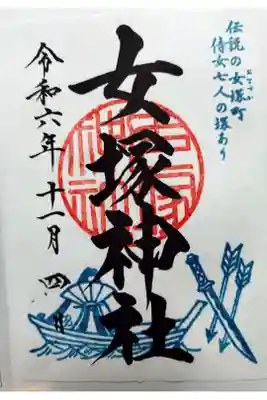 伝説の女塚町
おなづか
侍女七人の塚あり
女塚神社
令和六年十一月四日